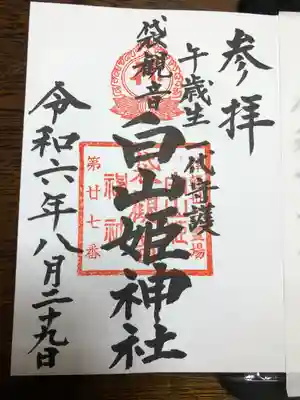 参拝
午歳生
一代守護
袋観音
白山姫神社
第廿七番
令和六年八月二十九日